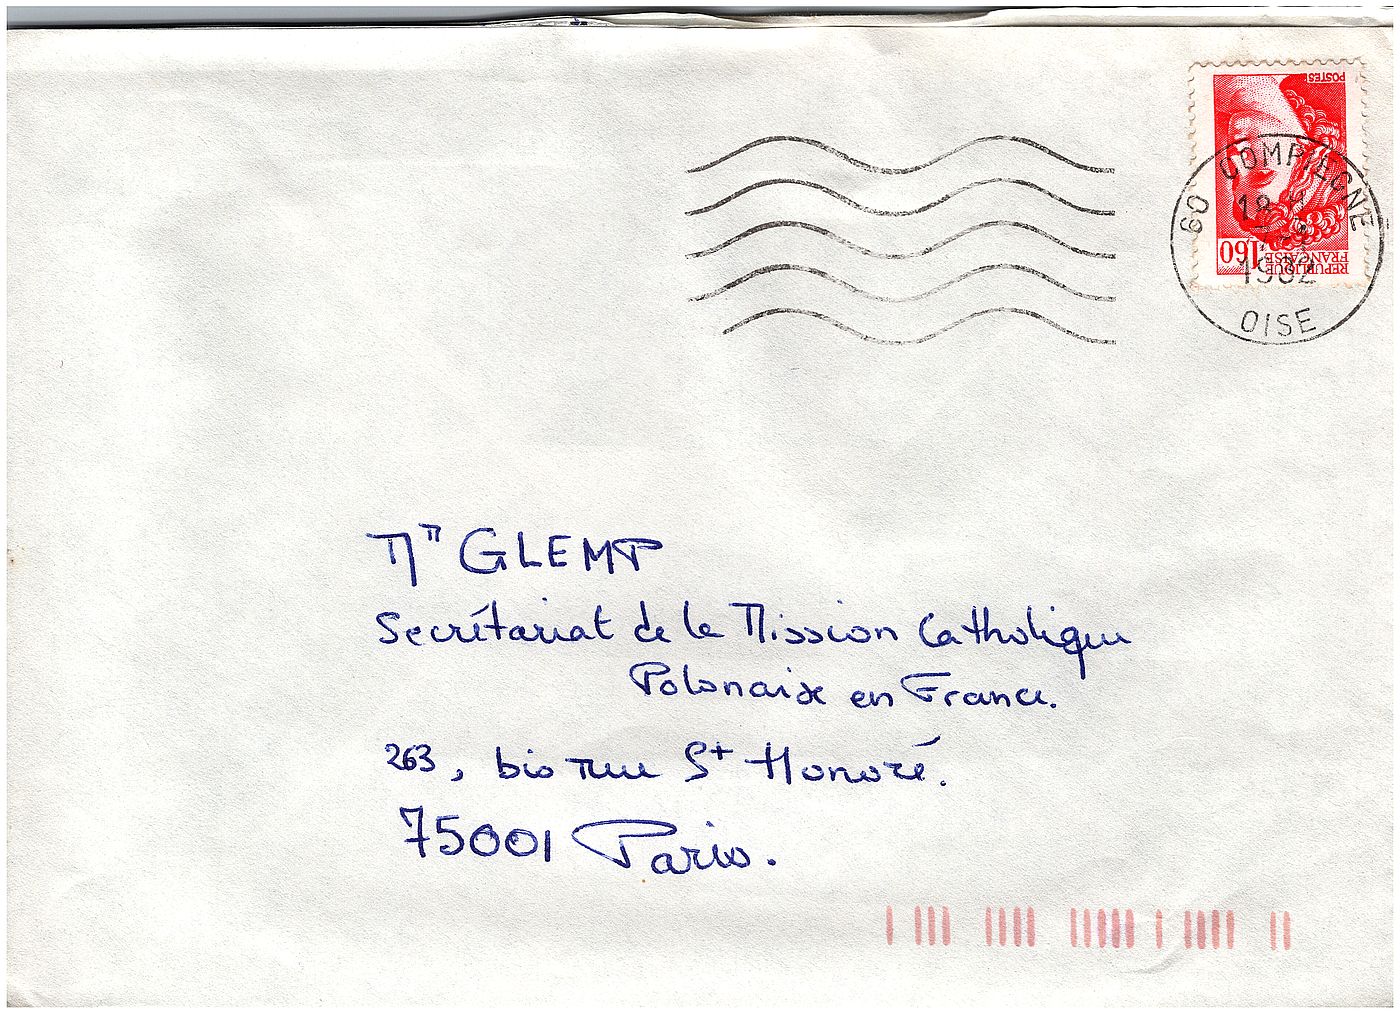 POSTES
1,60
REPUBLIQUE
FRANÇAISE
60 COMPIEGNE
18
1982
OISE
Mr GLEMP
Secrétariat de la Mission Catholique
Polonaise en France.
263, bis rue St Honoré.
75001 Paris.